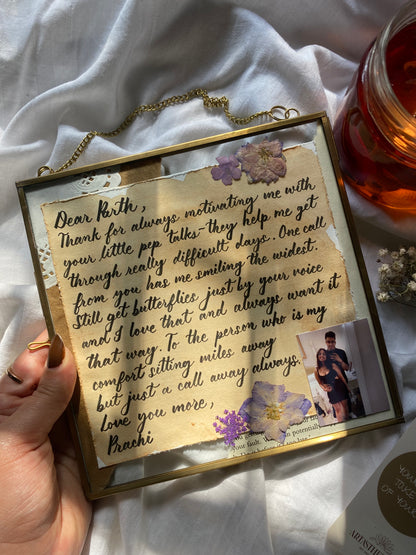 Dear Parth,
Thank for always motivating me with
your little pep talks-they help me get
through really difficult days. One call
from you has me smiling the widest.
Still get butterflies just by your voice
and I love that and always want it
that way. To the person who is my
comfort sitting miles away
but just a call away always.
Love you more,
Prachi